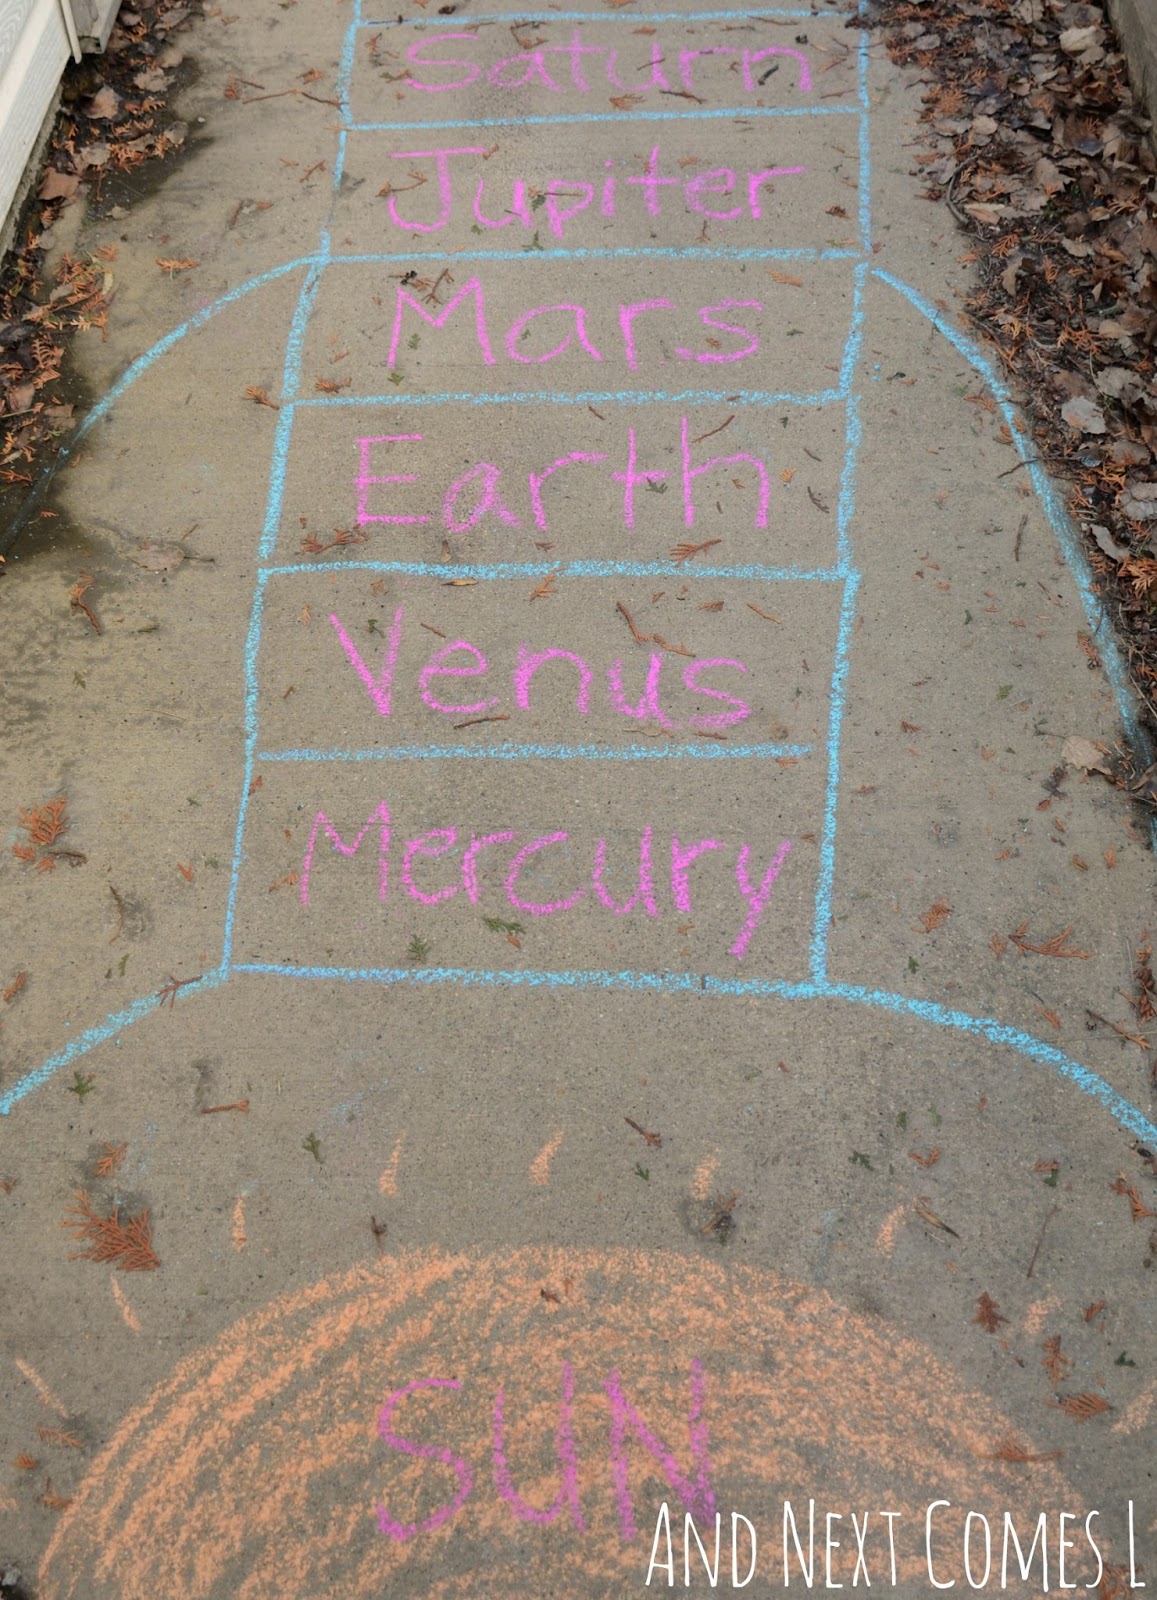 Saturn
Jupiter
Mars
Earth
Venus
Mercury
SUN
AND NEXT COMES L